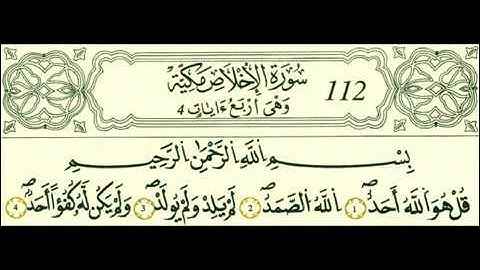 سُورَةُ الْإِخْلَاصِ مَكِّيَّةٌ
112
وَهِىَ أَرْبَعُ ءَايَاتٍ 4
بِسْمِ اللَّهِ الرَّحْمَٰنِ الرَّحِيمِ
قُلْ هُوَ اللَّهُ أَحَدٌ ۖ 1 اللَّهُ الصَّمَدُ ۖ 2 لَمْ يَلِدْ وَلَمْ يُولَدْ ۖ 3 وَلَمْ يَكُن لَّهُ كُفُؤًا أَحَدٌ ۖ 4